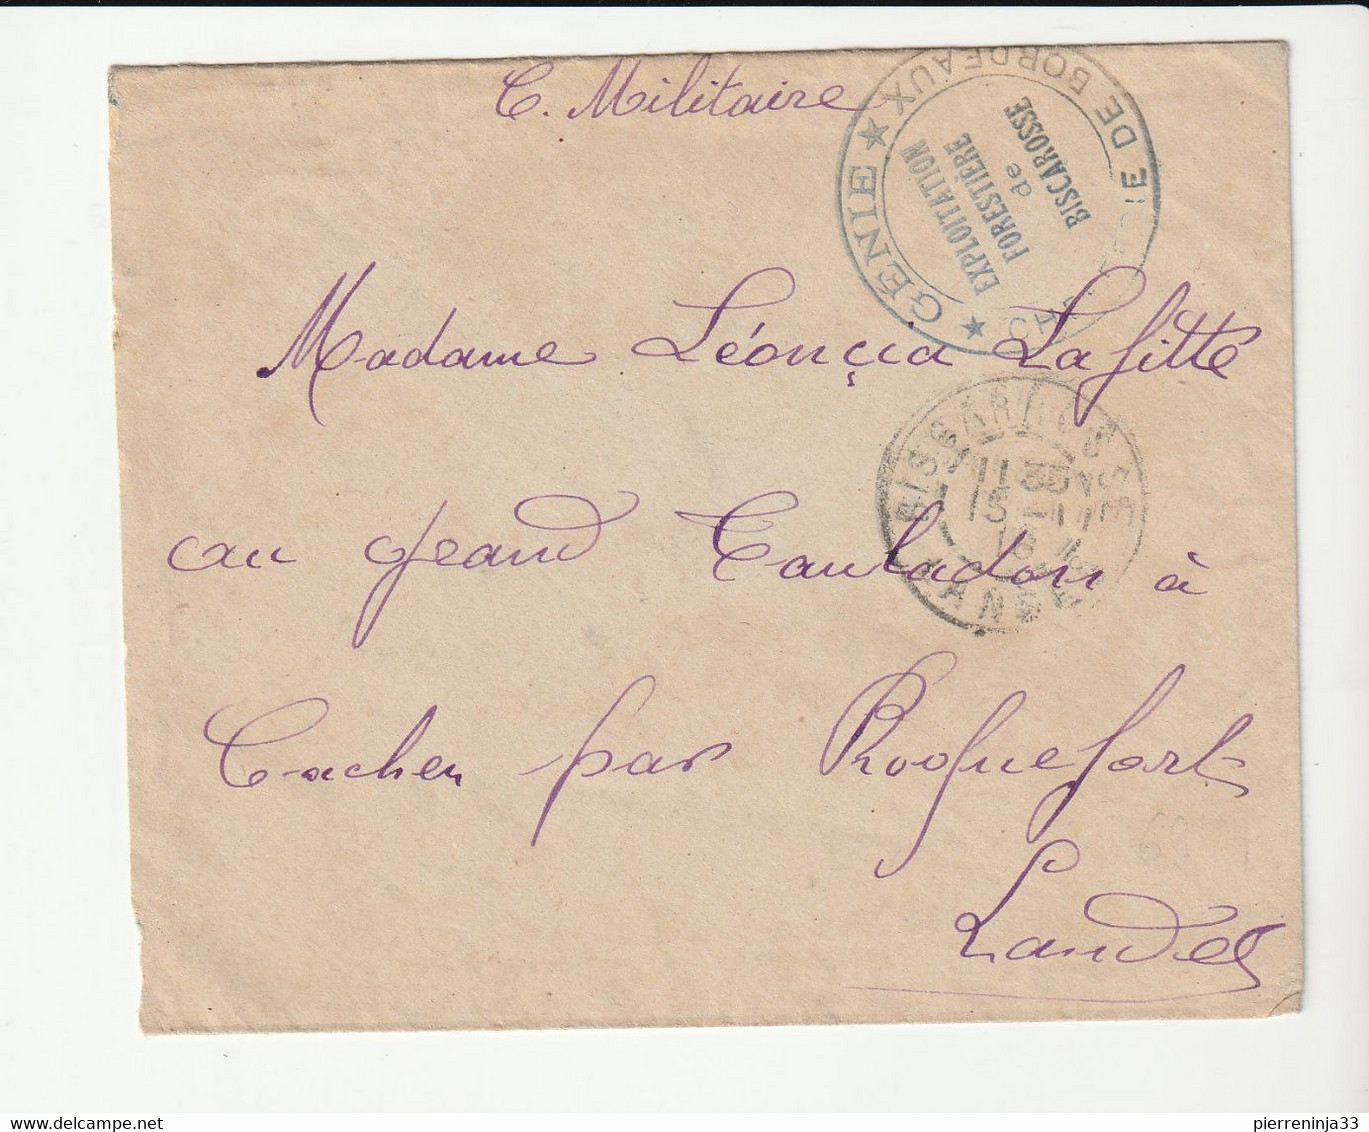 C. Militaire
★ GÉNIE ★ CHEFFERIE DE BORDEAUX
EXPLOITATION
FORESTIÈRE
de
BISCAROSSE
Madame Léonçia Lafitte
BISCARROSSE
11 35
15 - 11
18
LANDES
au grand Tauladon à
Cachen par Roquefort
Landes
delcampe.net
pierreninja33